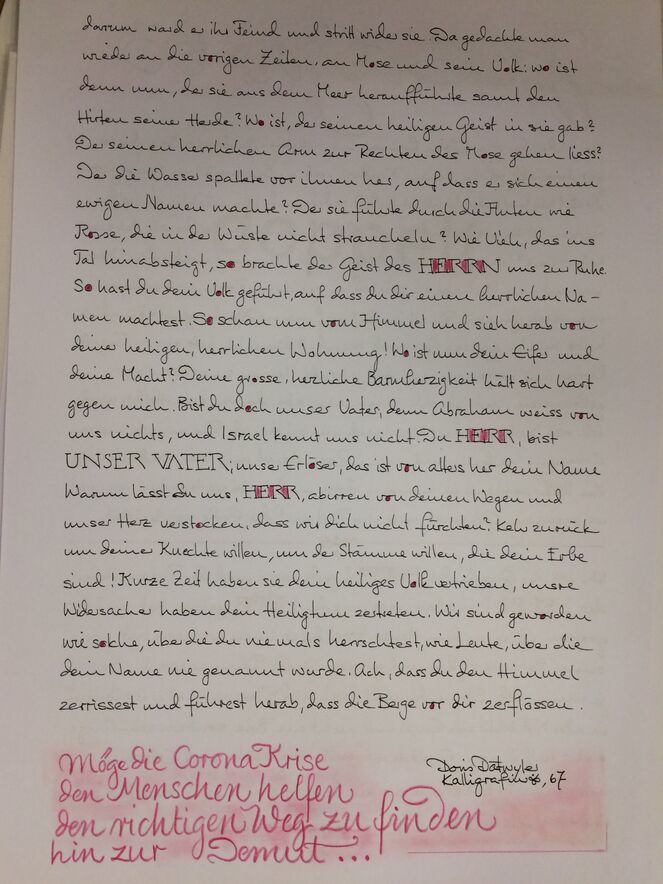 darum ward er ihr Feind und stritt wider sie. Da gedachte man
wieder an die vorigen Zeiten, an Mose und sein Volk: wo ist
denn nun, der sie aus dem Meer heraufführte samt den
Hirten seiner Herde? Wo ist, der seinen heiligen Geist in sie gab?
Der seinen herrlichen Arm zur Rechten des Mose gehen liess?
Der die Wasser spaltete vor ihnen her, auf dass er sich einen
ewigen Namen machte? Der sie führte durch die Fluten wie
Rosse, die in der Wüste nicht straucheln? Wie Vieh, das ins
Tal hinabsteigt, so brachte der Geist des HERRN uns zur Ruhe.
So hast du dein Volk geführt, auf dass du dir einen herrlichen Na-
men machtest. So schau nun vom Himmel und sieh herab von
deiner heiligen, herrlichen Wohnung! Wo ist nun dein Eifer und
deine Macht? Deine grosse, herzliche Barmherzigkeit hält sich hart
gegen mich. Bist du doch unser Vater, denn Abraham weiss von
uns nichts, und Israel kennt uns nicht. Du HERR, bist
UNSER VATER; unser Erlöser, das ist von alters her dein Name
Warum lässt du uns, HERR, abirren von deinen Wegen und
unser Herz verstocken, dass wir dich nicht fürchten? Kehr zurück
um deiner Knechte willen, um der Stämme willen, die dein Erbe
sind! Kurze Zeit haben sie dein heiliges Volk vertrieben, unsre
Widersacher haben dein Heiligtum zertreten. Wir sind geworden
wie solche, über die du niemals herrschtest, wie Leute, über die
dein Name nie genannt wurde. Ach, dass du den Himmel
zerrissest und führest herab, dass die Berge vor dir zerflössen.
Möge die Corona Krise
den Menschen helfen
den richtigen Weg zu finden
hin zur Demut...
Doris Dätwyler
Kalligrafin, 67